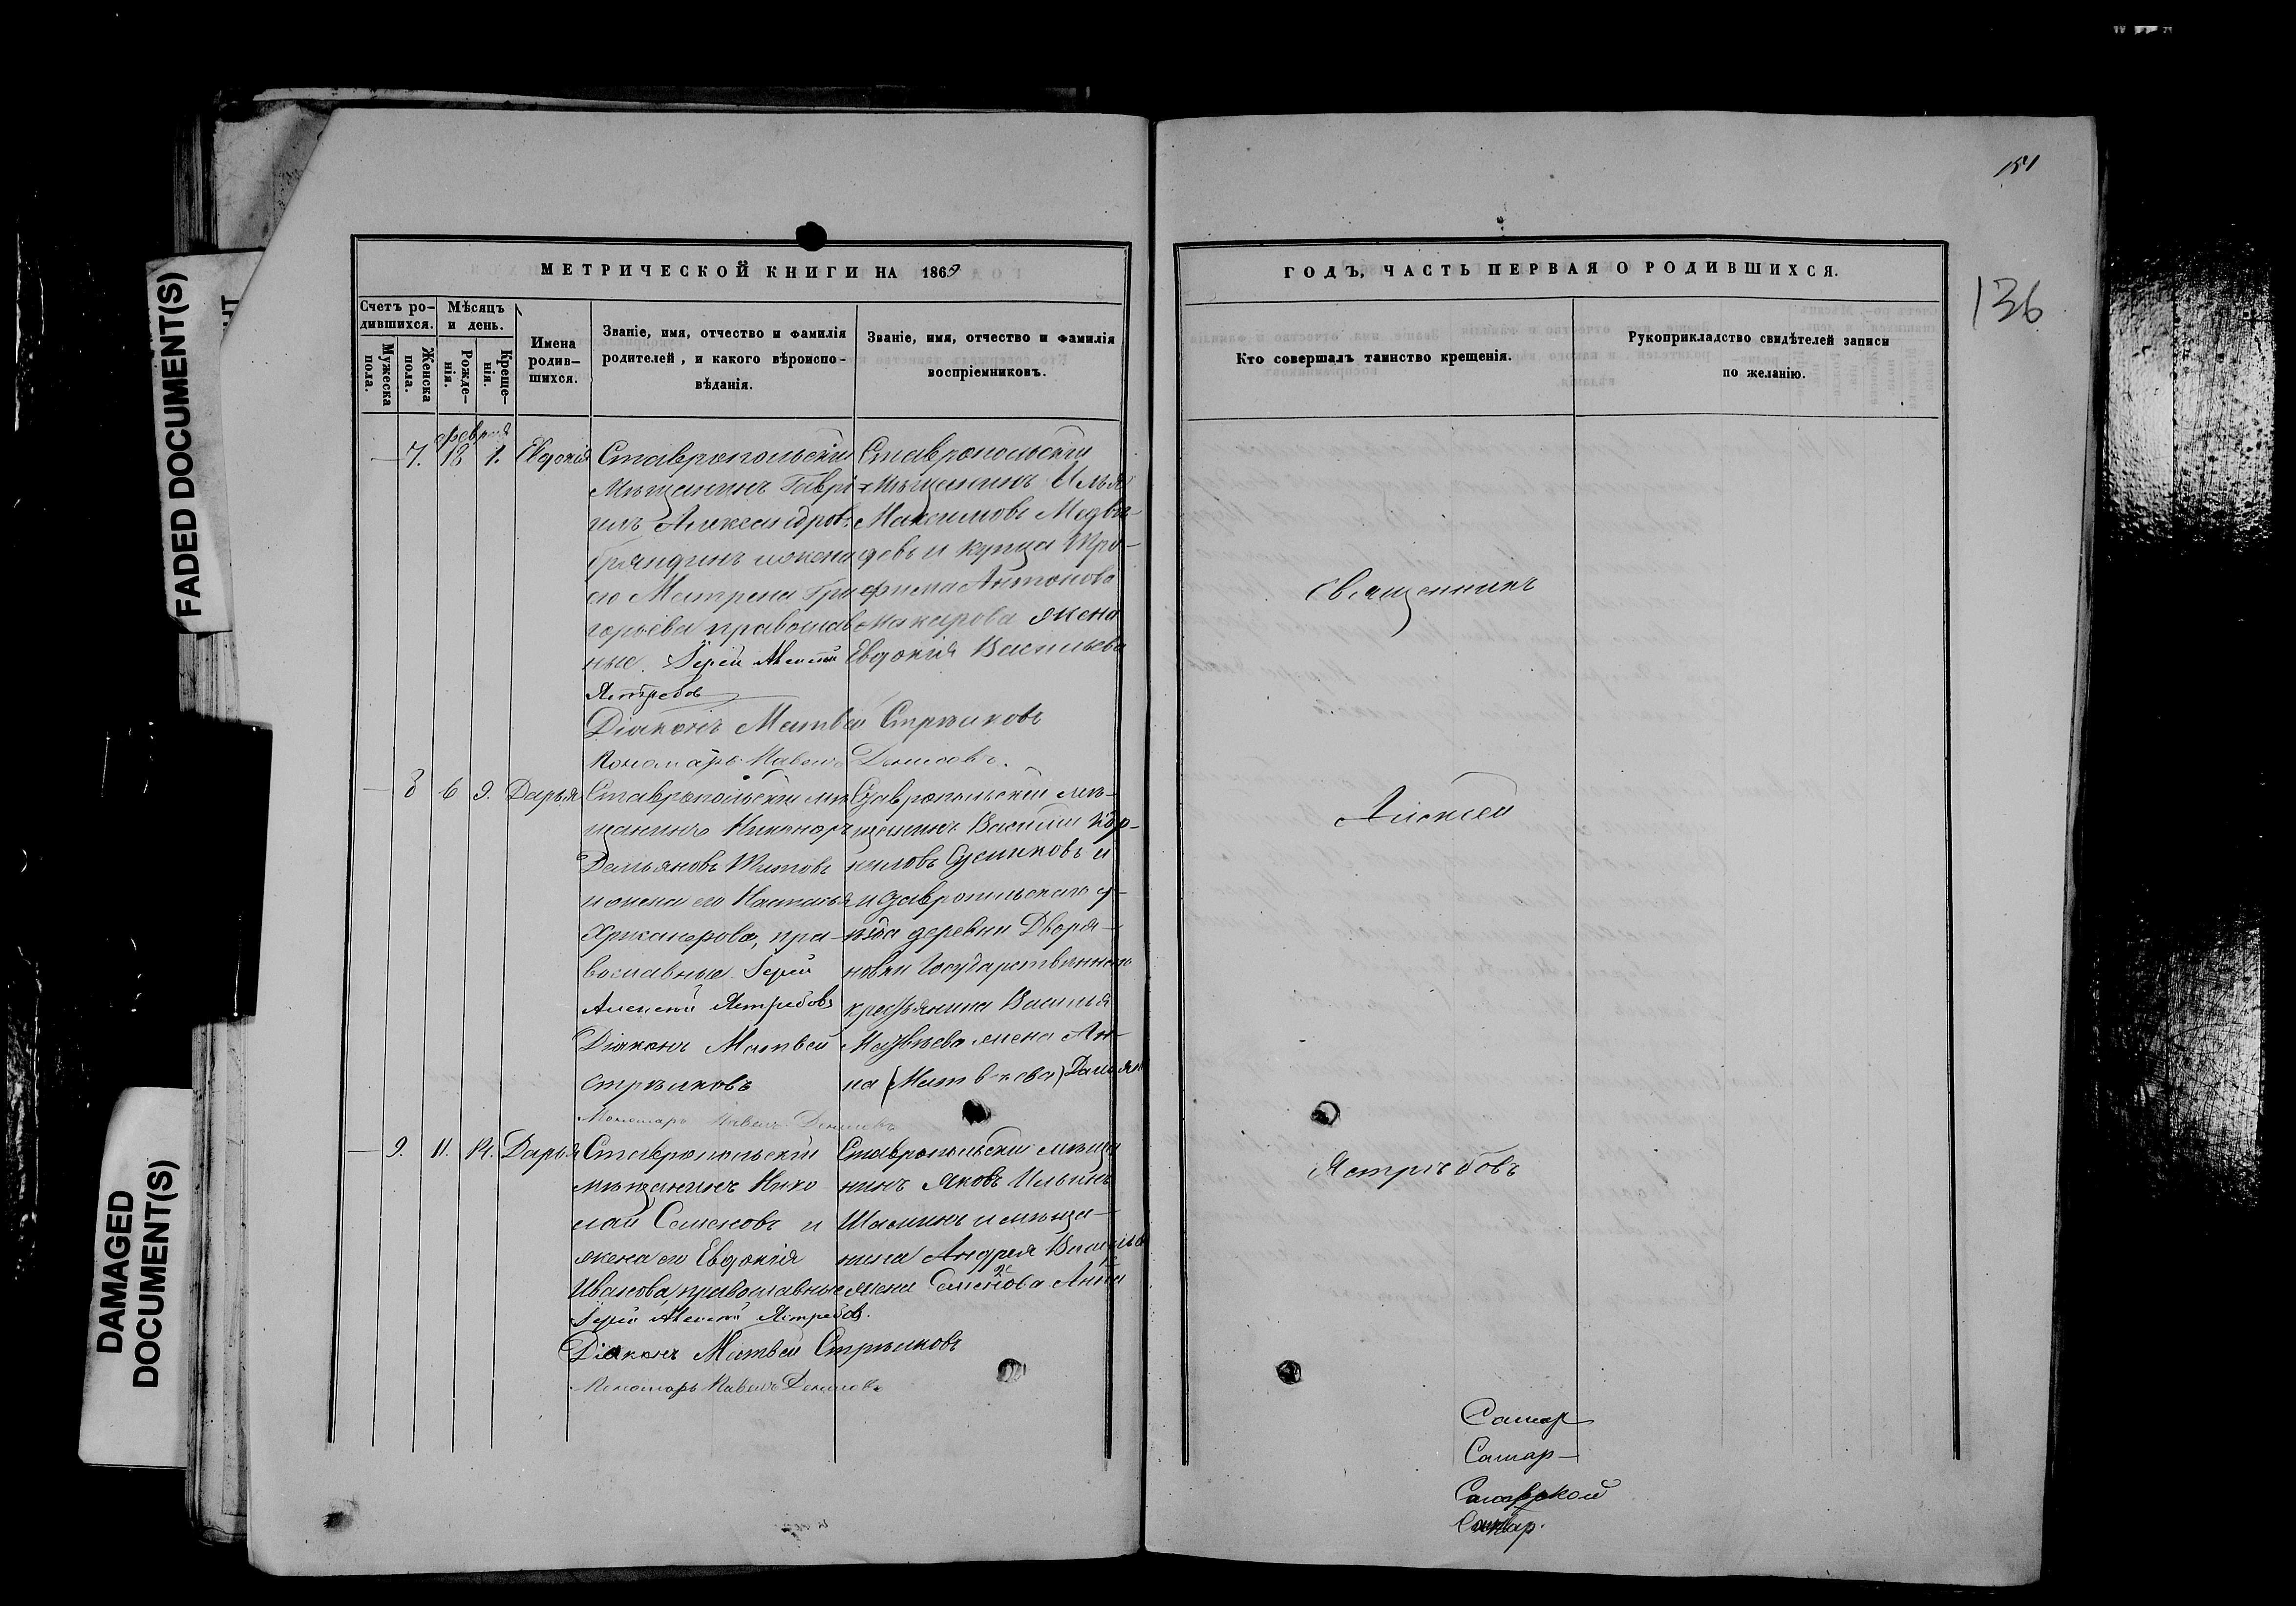 151
136
FADED DOCUMENT(S)
DAMAGED
DOCUMENT(S)
МЕТРИЧЕСКОЙ КНИГИ НА 1869
Счетъ ро-
дившихся.
Мужеска
пола.
Женска
пола.
Мѣсяцъ
и день.
Рожде-
нія.
Креще-
нія.
Имена
родив-
шихся.
Званіе, имя, отчество и фамилія
родителей, и какого вѣроиспо-
вѣданія.
Званіе, имя, отчество и фамилія
воспріемниковъ.
февраля
7. 18 1. Евдокія
Ставропольскій
Мѣщанинъ Гаврі-
илъ Александровъ
и жена
его Матрена Гри
горьева православ
ные. Іерей Алексій
Ястребов
Діаконъ Матвей Стрѣлковъ
Пономарь Павелъ Денисовъ.
Ставропольскій
мѣщанинъ Илья
Максимовъ Медвѣ-
девъ и купца Тро-
фима Антонова
Макарова жена
Евдокія Васильева
8 6 9. Дарья
Ставропольскій мѣ
щанинъ Никаноръ
Демьяновъ Титовъ
и жена его Настасья
пра-
вославные. Іерей
Алексій Ястребовъ
Діаконъ Матвей
Стрѣлковъ
Пономарь Павелъ Денисовъ
Ставропольскій мѣ-
щанинъ Василій Кор-
ниловъ и
и Ставропольскаго у-
ѣзда деревни Дворя-
новки Государственнаго
крестьянина Василья
Матвѣева жена Ан-
на (Матвѣева)
9. 11. 14. Дарья
Ставропольскій
мѣщанинъ Нико
лай Семеновъ и
жена его Евдокія
Иванова, православные
Іерей Алексій Ястребовъ.
Діаконъ Матвей Стрѣлковъ
Пономарь Павелъ Денисовъ
Ставропольскій мѣща
нинъ Яковъ Ильинъ
Шаминъ и мѣща-
нина Андрея Васильева
жена Семенова Анна
ГОДЪ, ЧАСТЬ ПЕРВАЯ О РОДИВШИХСЯ.
Кто совершалъ таинство крещенія.
Рукоприкладство свидѣтелей записи
по желанію.
Священникъ
Алексей
Ястребовъ
Самар
Самар-
Самарской
Самар.